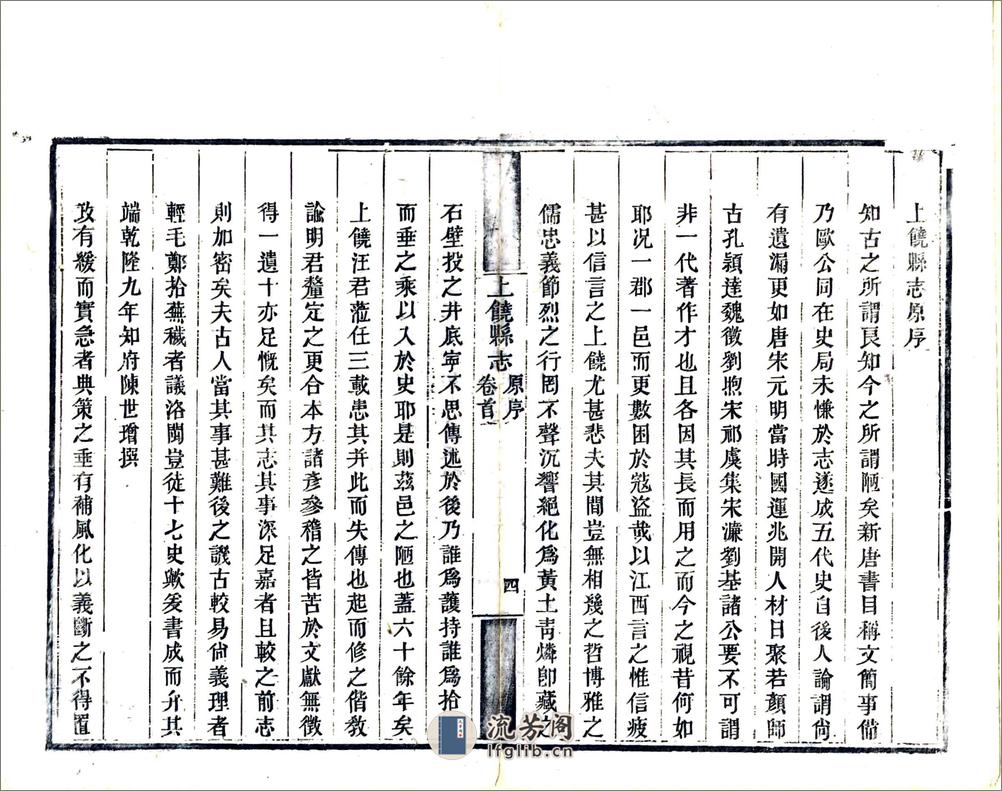 上饒縣志原序
知古之所謂良知今之所謂陋矣新唐書目稱文簡事俻
乃歐公同在史局未慊於志遂成五代史自後人論謂尙
有遺漏更如唐宋元明當時國運兆開人材日聚若顏師
古孔穎達魏徵劉煦宋祁虞集宋濂劉基諸公要不可謂
非一代著作才也且各因其長而用之而今之視昔何如
耶况一郡一邑而更數困於寇盜哉以江西言之惟信疲
甚以信言之上饒尤甚悲夫其間豈無相幾之哲博雅之
儒忠義節烈之行罔不聲沉響絕化爲黃土靑燐卽藏之
上饒縣志
原序
卷首
四
石壁投之井底寧不思傳述於後乃誰爲護持誰爲拾
而垂之乘以入於史耶是則茲邑之陋也蓋六十餘年矣
上饒汪君蒞任三載患其并此而失傳也起而修之偕敎
諭明君釐定之更合本方諸彥參稽之皆苦於文獻無徵
得一遺十亦足慨矣而其志其事深足嘉者且較之前志
則加密矣夫古人當其事甚難後之譏古較易尙義理者
輕毛鄭拾蕪穢者議洛閩豈徒十七史歟爰書成而弁其
端乾隆九年知府陳世增撰
攻有緩而實急者典策之垂有補風化以義斷之不得置
流芳阁
lfglib.cn